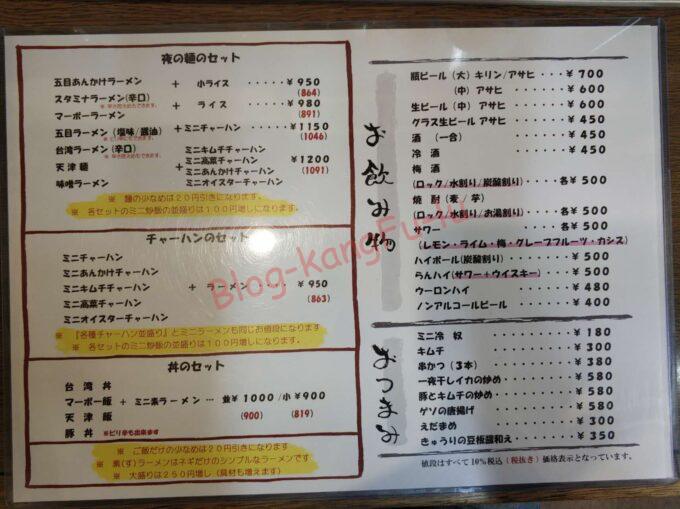 夜の麺のセット
五目あんかけラーメン + 小ライス ・・・・・¥ 950
(864)
スタミナラーメン(辛口) + ライス ・・・・¥ 980
※ 辛さ控えめもできます。
マーボーラーメン (891)
五目ラーメン (塩味/醤油) +ミニチャーハン ・・・・¥1150
(1046)
台湾ラーメン (辛口) ミニキムチチャーハン
※ 辛さ控えめもできます。
天津麺 + ミニ高菜チャーハン ¥1200
ミニあんかけチャーハン (1091)
味噌ラーメン ミニオイスターチャーハン
※ 麺の少なめは20円引きになります
※ 各セットのミニ炒飯の並盛りは100円増しになります。
チャーハンのセット
ミニチャーハン
ミニあんかけチャーハン
ミニキムチチャーハン + ラーメン ・・・・¥ 950
ミニ高菜チャーハン (863)
ミニオイスターチャーハン
※ 『各種チャーハン並盛り』とミニラーメンも同じお値段になります
※ 各セットのミニ炒飯の並盛りは100円増しになります。
丼のセット
台湾丼
マーボー飯 + ミニ素ラーメン … 並¥1000/小¥900
天津飯 (900) (819)
豚丼 ※ピリ辛も出来ます
※ ご飯だけの少なめは20円引きになります
※ 素(す)ラーメンはネギだけのシンプルなラーメンです。
※ 大盛りは250円増し (具材も増えます)
お飲み物
瓶ビール (大) キリン/アサヒ ・・・¥ 700
(中) アサヒ ・・・・・¥ 600
生ビール (中) アサヒ ・・・・・¥ 600
グラス生ビール アサヒ ・・・・・¥ 450
酒 (一合) ・・・・・¥ 450
冷酒 ・・・・・¥ 450
梅酒
(ロック/水割り/炭酸割り) ・・・各¥ 500
焼酎 (麦/芋)
(ロック/水割り/お湯割り) ・・・各¥ 500
サワー ・・・各¥ 500
(レモン・ライム・梅・グレープフルーツ・カシス)
ハイボール(炭酸割り) ・・・・¥ 500
らんハイ(サワー+ウイスキー) ・・・・¥ 500
ウーロンハイ ・・・・¥ 480
ノンアルコールビール ・・・・¥ 400
おつまみ
ミニ冷奴 ・・・・・・¥ 180
キムチ ・・・・・・¥ 300
串かつ (3本) ・・・・・・¥ 380
一夜干しイカの炒め ・・・・・・¥ 580
豚とキムチの炒め ・・・・・・¥ 580
ゲソの唐揚げ ・・・・・・¥ 580
えだまめ ・・・・・・¥ 300
きゅうりの豆板醤和え ・・・・¥ 350
値段はすべて 10%税込 (税抜き) 価格表示となっています。